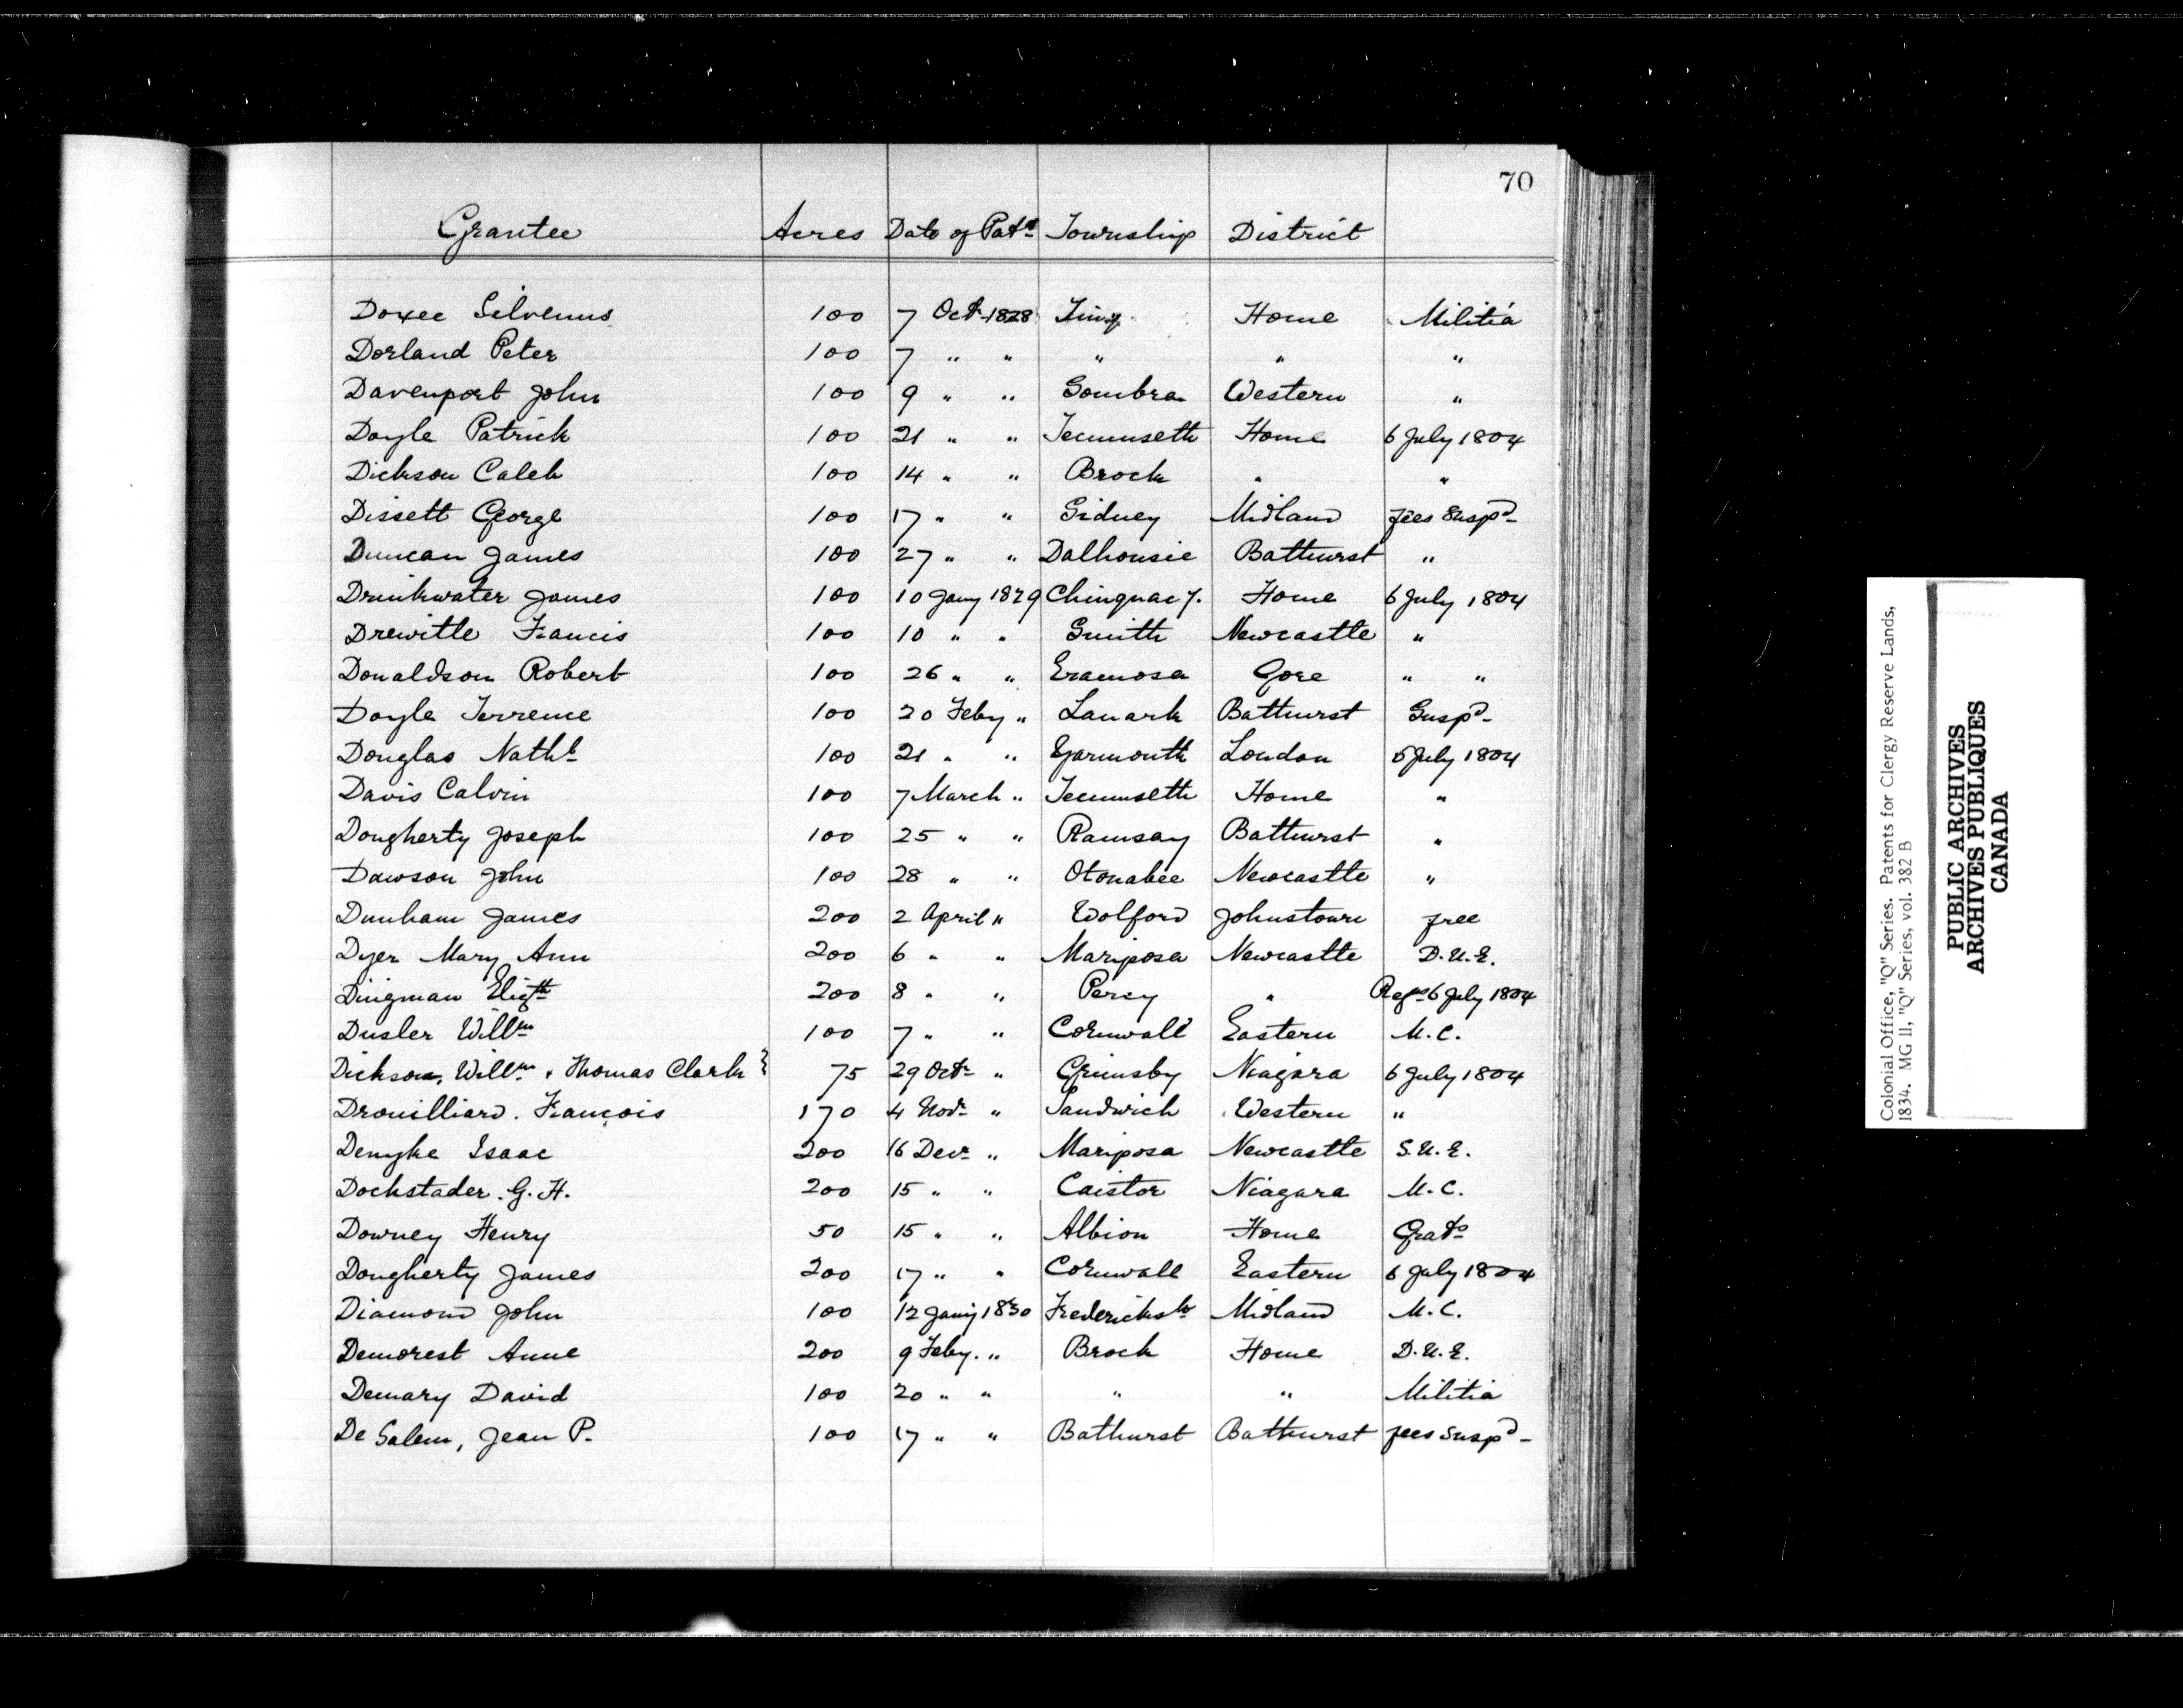 70
Grantee Acres Date of Patt Township District
Doxee Silvenus 100 7 Oct 1828 King Home Militia
Dorland Peter 100 7 " " " " "
Davenport John 100 9 " " Sombra Western "
Doyle Patrick 100 21 " " Tecumseth Home 6 July 1804
Dickson Caleb 100 14 " " Brock " "
Dissett George 100 17 " " Sidney Midland fees Suspd
Duncan James 100 27 " " Dalhousie Bathurst "
Drinkwater James 100 10 Jany 1829 Chinguacy. Home 6 July 1804
Drewitte Francis 100 10 " " Smith Newcastle "
Donaldson Robert 100 26 " " Eramosa Gore " "
Doyle Terrence 100 20 Feby " Lanark Bathurst Suspd
Douglas Nathl 100 21 " " Yarmouth London 6 July 1804
Davis Calvin 100 7 March " Tecumseth Home "
Dougherty Joseph 100 25 " " Ramsay Bathurst "
Dawson John 100 28 " " Otonabee Newcastle "
Dunham James 200 2 April " Wolford Johnstown free
Dyer Mary Ann 200 6 " " Mariposa Newcastle D.U.E.
Dingman Elizth 200 8 " " Percy " Regns 6 July 1804
Dusler Willm 100 7 " " Cornwall Eastern M.C.
Dickson, Willm & Thomas Clark } 75 29 Octr " Grimsby Niagara 6 July 1804
Drouilliard. François 170 4 Novr " Sandwich Western "
Denyke Isaac 200 16 Decr " Mariposa Newcastle S.U.E.
Dockstader. G. H. 200 15 " " Caistor Niagara M.C.
Downey Henry 50 15 " " Albion Home Grats
Dougherty James 200 17 " " Cornwall Eastern 6 July 1804
Diamond John 100 12 Jany 1830 Fredericksb Midland M.C.
Demorest Anne 200 9 Feby. " Brock Home D.U.E.
Demary David 100 20 " " " " Militia
De Salem, Jean P. 100 17 " " Bathurst Bathurst fees Suspd
Colonial Office, "Q" Series. Patents for Clergy Reserve Lands,
1834. MG 11, "Q" Series, vol. 382 B
PUBLIC ARCHIVES
ARCHIVES PUBLIQUES
CANADA